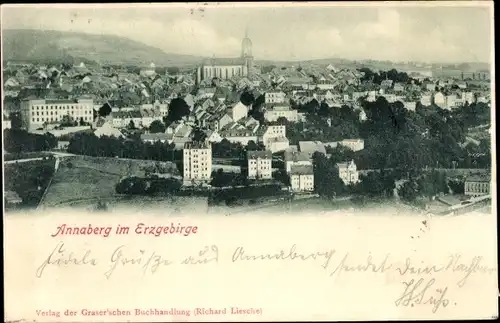 Annaberg im Erzgebirge
Fidele Grüße aus Annaberg, sendet Dein Nachbar
H. Süß.
Verlag der Graser'schen Buchhandlung (Richard Liesche)